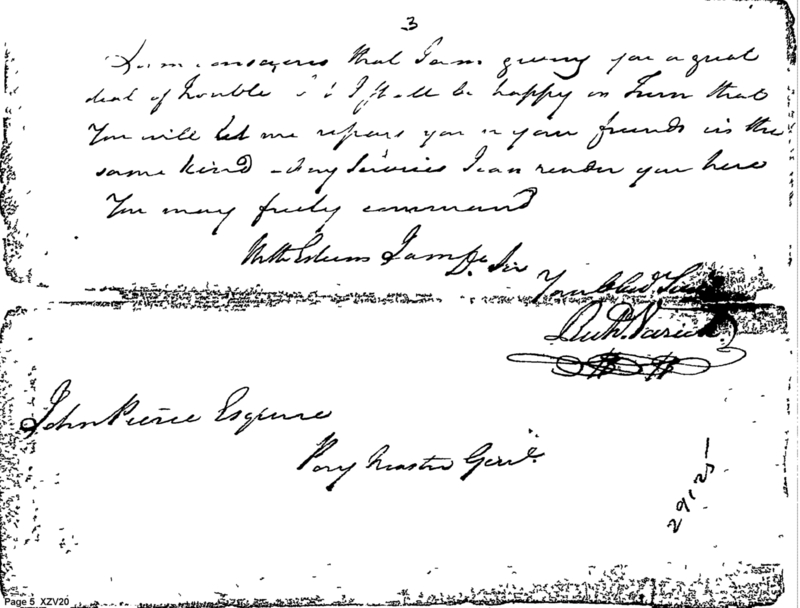 3
I am conscious that I am giving you a great
deal of trouble & I shall be happy in Turn that
You will let me repay you or your friends in the
same kind - Any Services I can render you here
You may freely command
With Esteem I am Dr. Sir
Your Obed. Serv
Richd. Varick
John Pierce Esquire
Pay Master Genl.
29125
Page 5 XZV20